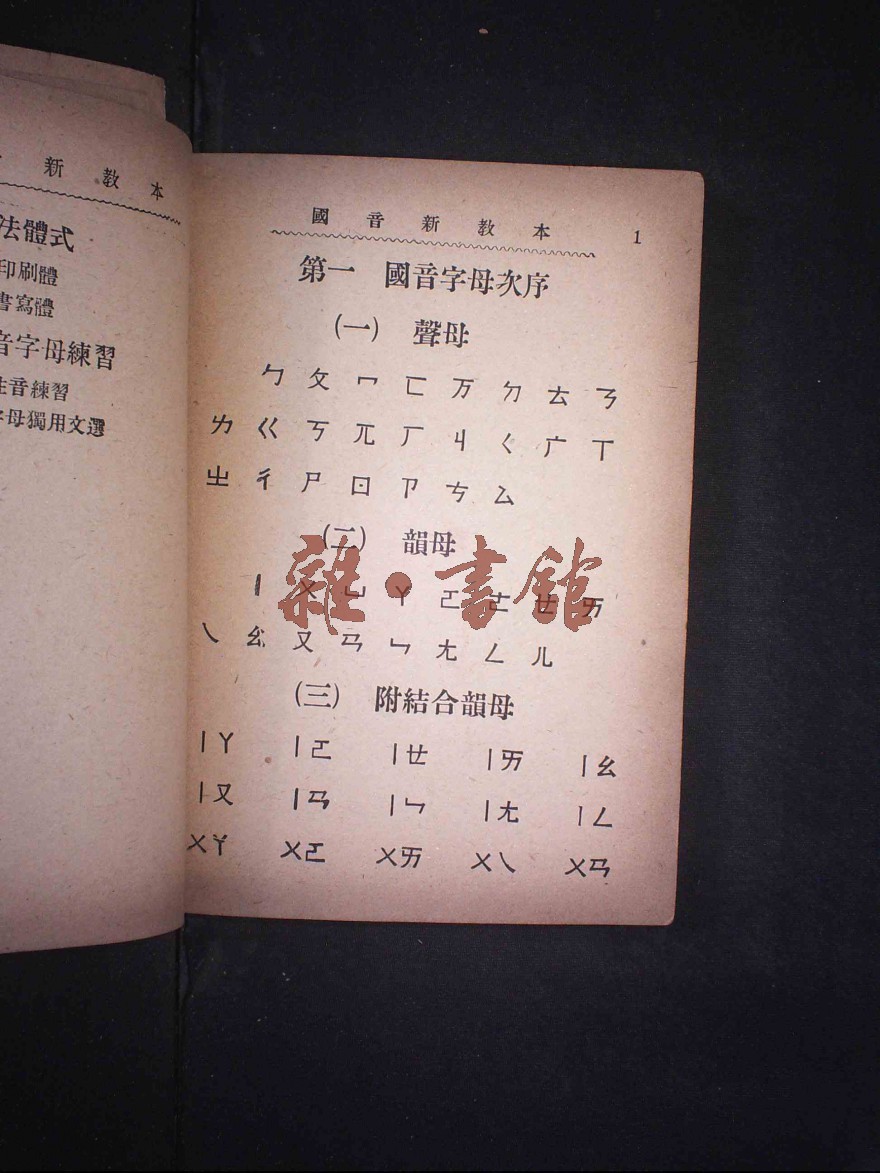 新教本
法體式
印刷體
書寫體
音字母練習
注音練習
字母獨用文選
國音新教本 1
第一 國音字母次序
(一) 聲母
ㄅ ㄆ ㄇ ㄈ ㄪ ㄉ ㄊ ㄋ
ㄌ ㄍ ㄎ ㄫ ㄏ ㄐ ㄑ ㄬ ㄒ
ㄓ ㄔ ㄕ ㄖ ㄗ ㄘ ㄙ
(二) 韻母
ㄧ ㄨ ㄩ ㄚ ㄛ ㄜ ㄝ ㄞ
ㄟ ㄠ ㄡ ㄢ ㄣ ㄤ ㄥ ㄦ
(三) 附結合韻母
ㄧㄚ ㄧㄛ ㄧㄝ ㄧㄞ ㄧㄠ
ㄧㄡ ㄧㄢ ㄧㄣ ㄧㄤ ㄧㄥ
ㄨㄚ ㄨㄛ ㄨㄞ ㄨㄟ ㄨㄢ
雜·書館